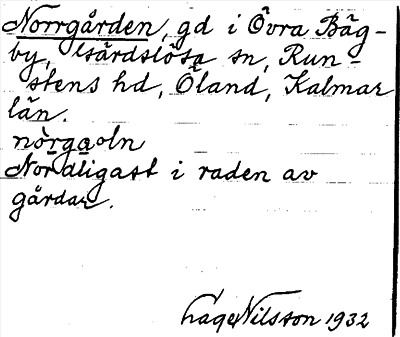 Norrgården, gd i Övra Bäg-
by, Gärdslösa sn, Run-
stens hd, Öland, Kalmar
län.
nòrgaoln
Nordligast i raden av
gårdar.
Lage Nilsson 1932